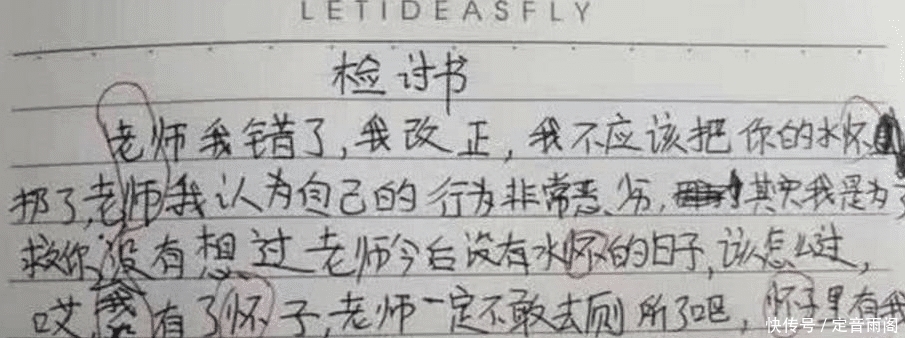 LETIDEASFLY
检讨书
老师我错了,我改正,我不应该把你的水怀
那了,老师我认为自己的行为非常恶劣,其实我是为了
救你,没有想过老师今后没有水怀的日子,该怎么过,
哎 有了怀子,老师一定不敢去厕所了吧,怀子里有我
快传号/定音雨阁